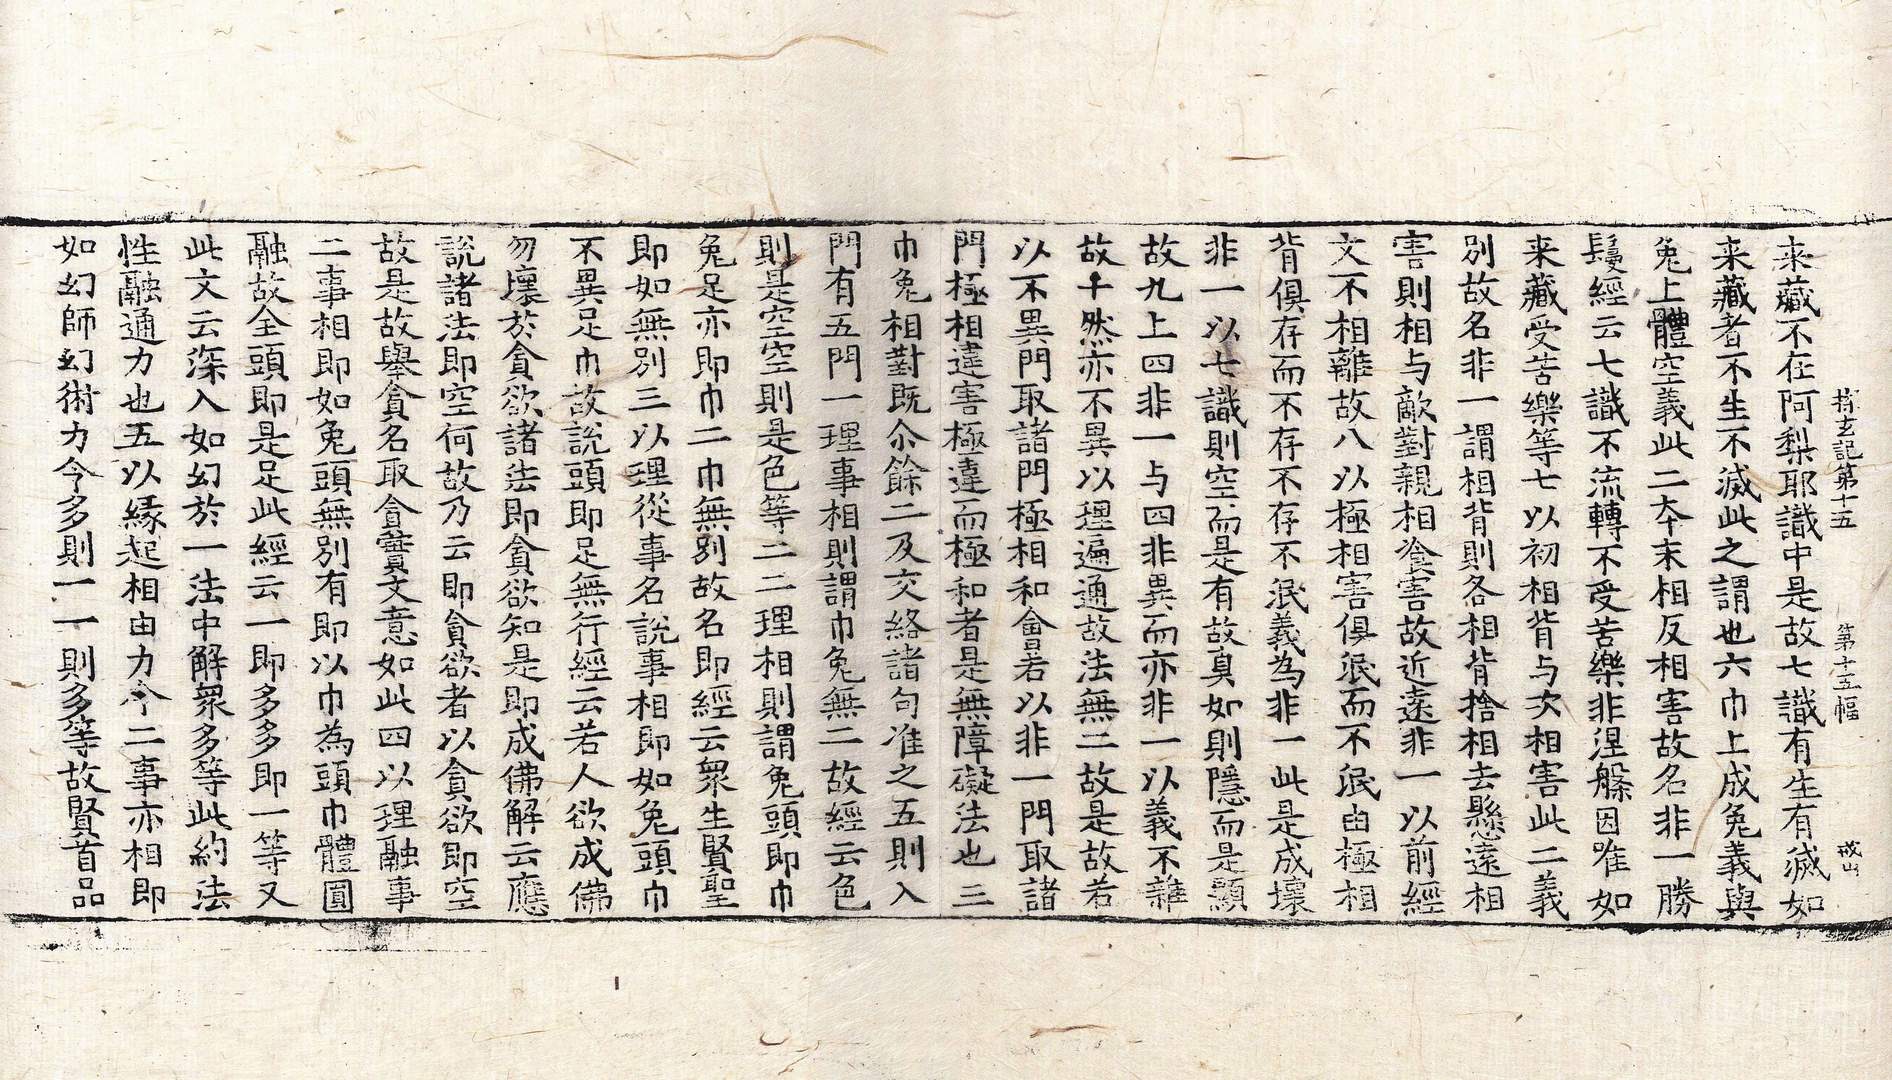 搜玄記第十五　第十五幅　戒山
来藏不在阿梨耶識中是故七識有生有滅如
来藏者不生不滅此之謂也六巾上成兔義與
兔上體空義此二本末相反相害故名非一勝
鬘經云七識不流轉不受苦樂非涅槃因唯如
来藏受苦樂等七以初相背与次相害此二義
別故名非一謂相背則各相背捨相去懸遠相
害則相与敵對親相飡害故近遠非一以前經
文不相離故八以極相害俱泯而不泯由極相
背俱存而不存不存不泯義為非一此是成壞
非一以七識則空而是有故真如則隱而是顯
故九上四非一与四非異而亦非一以義不雜
故十然亦不異以理遍通故法無二故是故若
以不異門取諸門極相和會若以非一門取諸
門極相違害極違而極和者是無障礙法也三
巾兔相對既尒餘二及交絡諸句准之五則入
門有五門一理事相則謂巾兔無二故經云色
則是空空則是色等二二理相則謂兔頭即巾
兔足亦即巾二巾無別故名即經云衆生賢聖
即如無別三以理從事名說事相即如兔頭巾
不異足巾故說頭即足無行經云若人欲成佛
勿壞於貪欲諸法即貪欲知是即成佛解云應
說諸法即空何故乃云即貪欲者以貪欲即空
故是故舉貪名取貪實文意如此四以理融事
二事相即如兔頭無別有即以巾為頭巾體圓
融故全頭即是足此經云一即多多即一等又
此文云深入如幻於一法中解衆多等此約法
性融通力也五以緣起相由力令二事亦相即
如幻師幻術力令多則一一則多等故賢首品